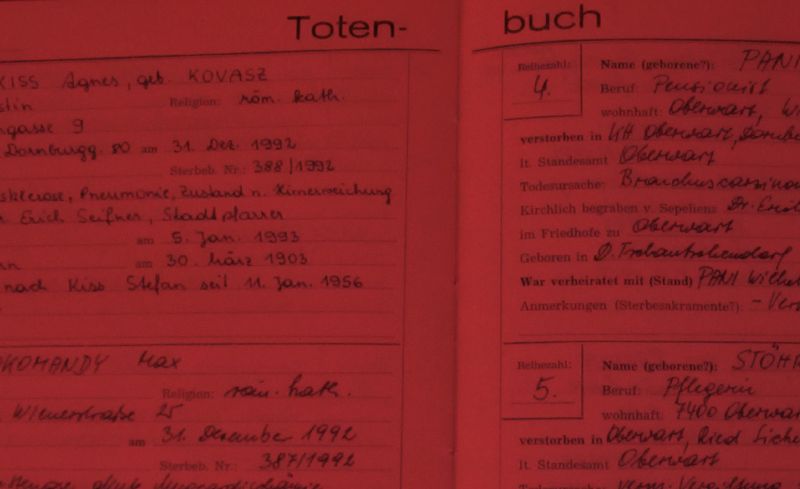 Toten-
KISS Agnes, geb. KOVASZ
Religion: röm. kath.
gasse 9
Dornburgg. 80 am 31. Dez. 1992
Sterbeb. Nr.: 388/1992
Pneumonie, Zustand n. Hirnerweichung
Erich Seifner, Stadtpfarrer
am 5. Jan. 1993
am 30. März 1903
nach Kiss Stefan seit 11. Jan. 1956
Max
Religion: röm. kath.
Wienerstraße 25
am 31. Dezember 1992
Sterbeb. Nr.: 387/1992
buch
Reihezahl: 4. Name (geborene?): PANI
Beruf: Pensionist
wohnhaft: Oberwart,
verstorben in KH Oberwart,
lt. Standesamt Oberwart
Todesursache:
Kirchlich begraben v. Sepeliens Dr.
im Friedhofe zu Oberwart
Geboren in
War verheiratet mit (Stand) PANI
Anmerkungen (Sterbesakramente?):
Reihezahl: 5. Name (geborene?): STÖHR
Beruf: Pflegerin
wohnhaft: 7400 Oberwart
verstorben in Oberwart, Ried
lt. Standesamt Oberwart